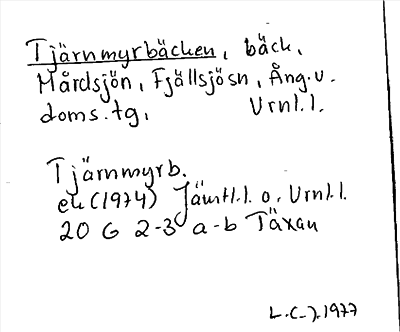 Tjärnmyrbäcken, bäck,
Mårdsjön, Fjällsjösn, Ång.v.
doms.tg. Vrnl.l.
Tjärnmyrb.
ek (1974) Jämtl.l. o. Vrnl.l.
20 G 2-3 a-b Täxan
L.C-J. 1977